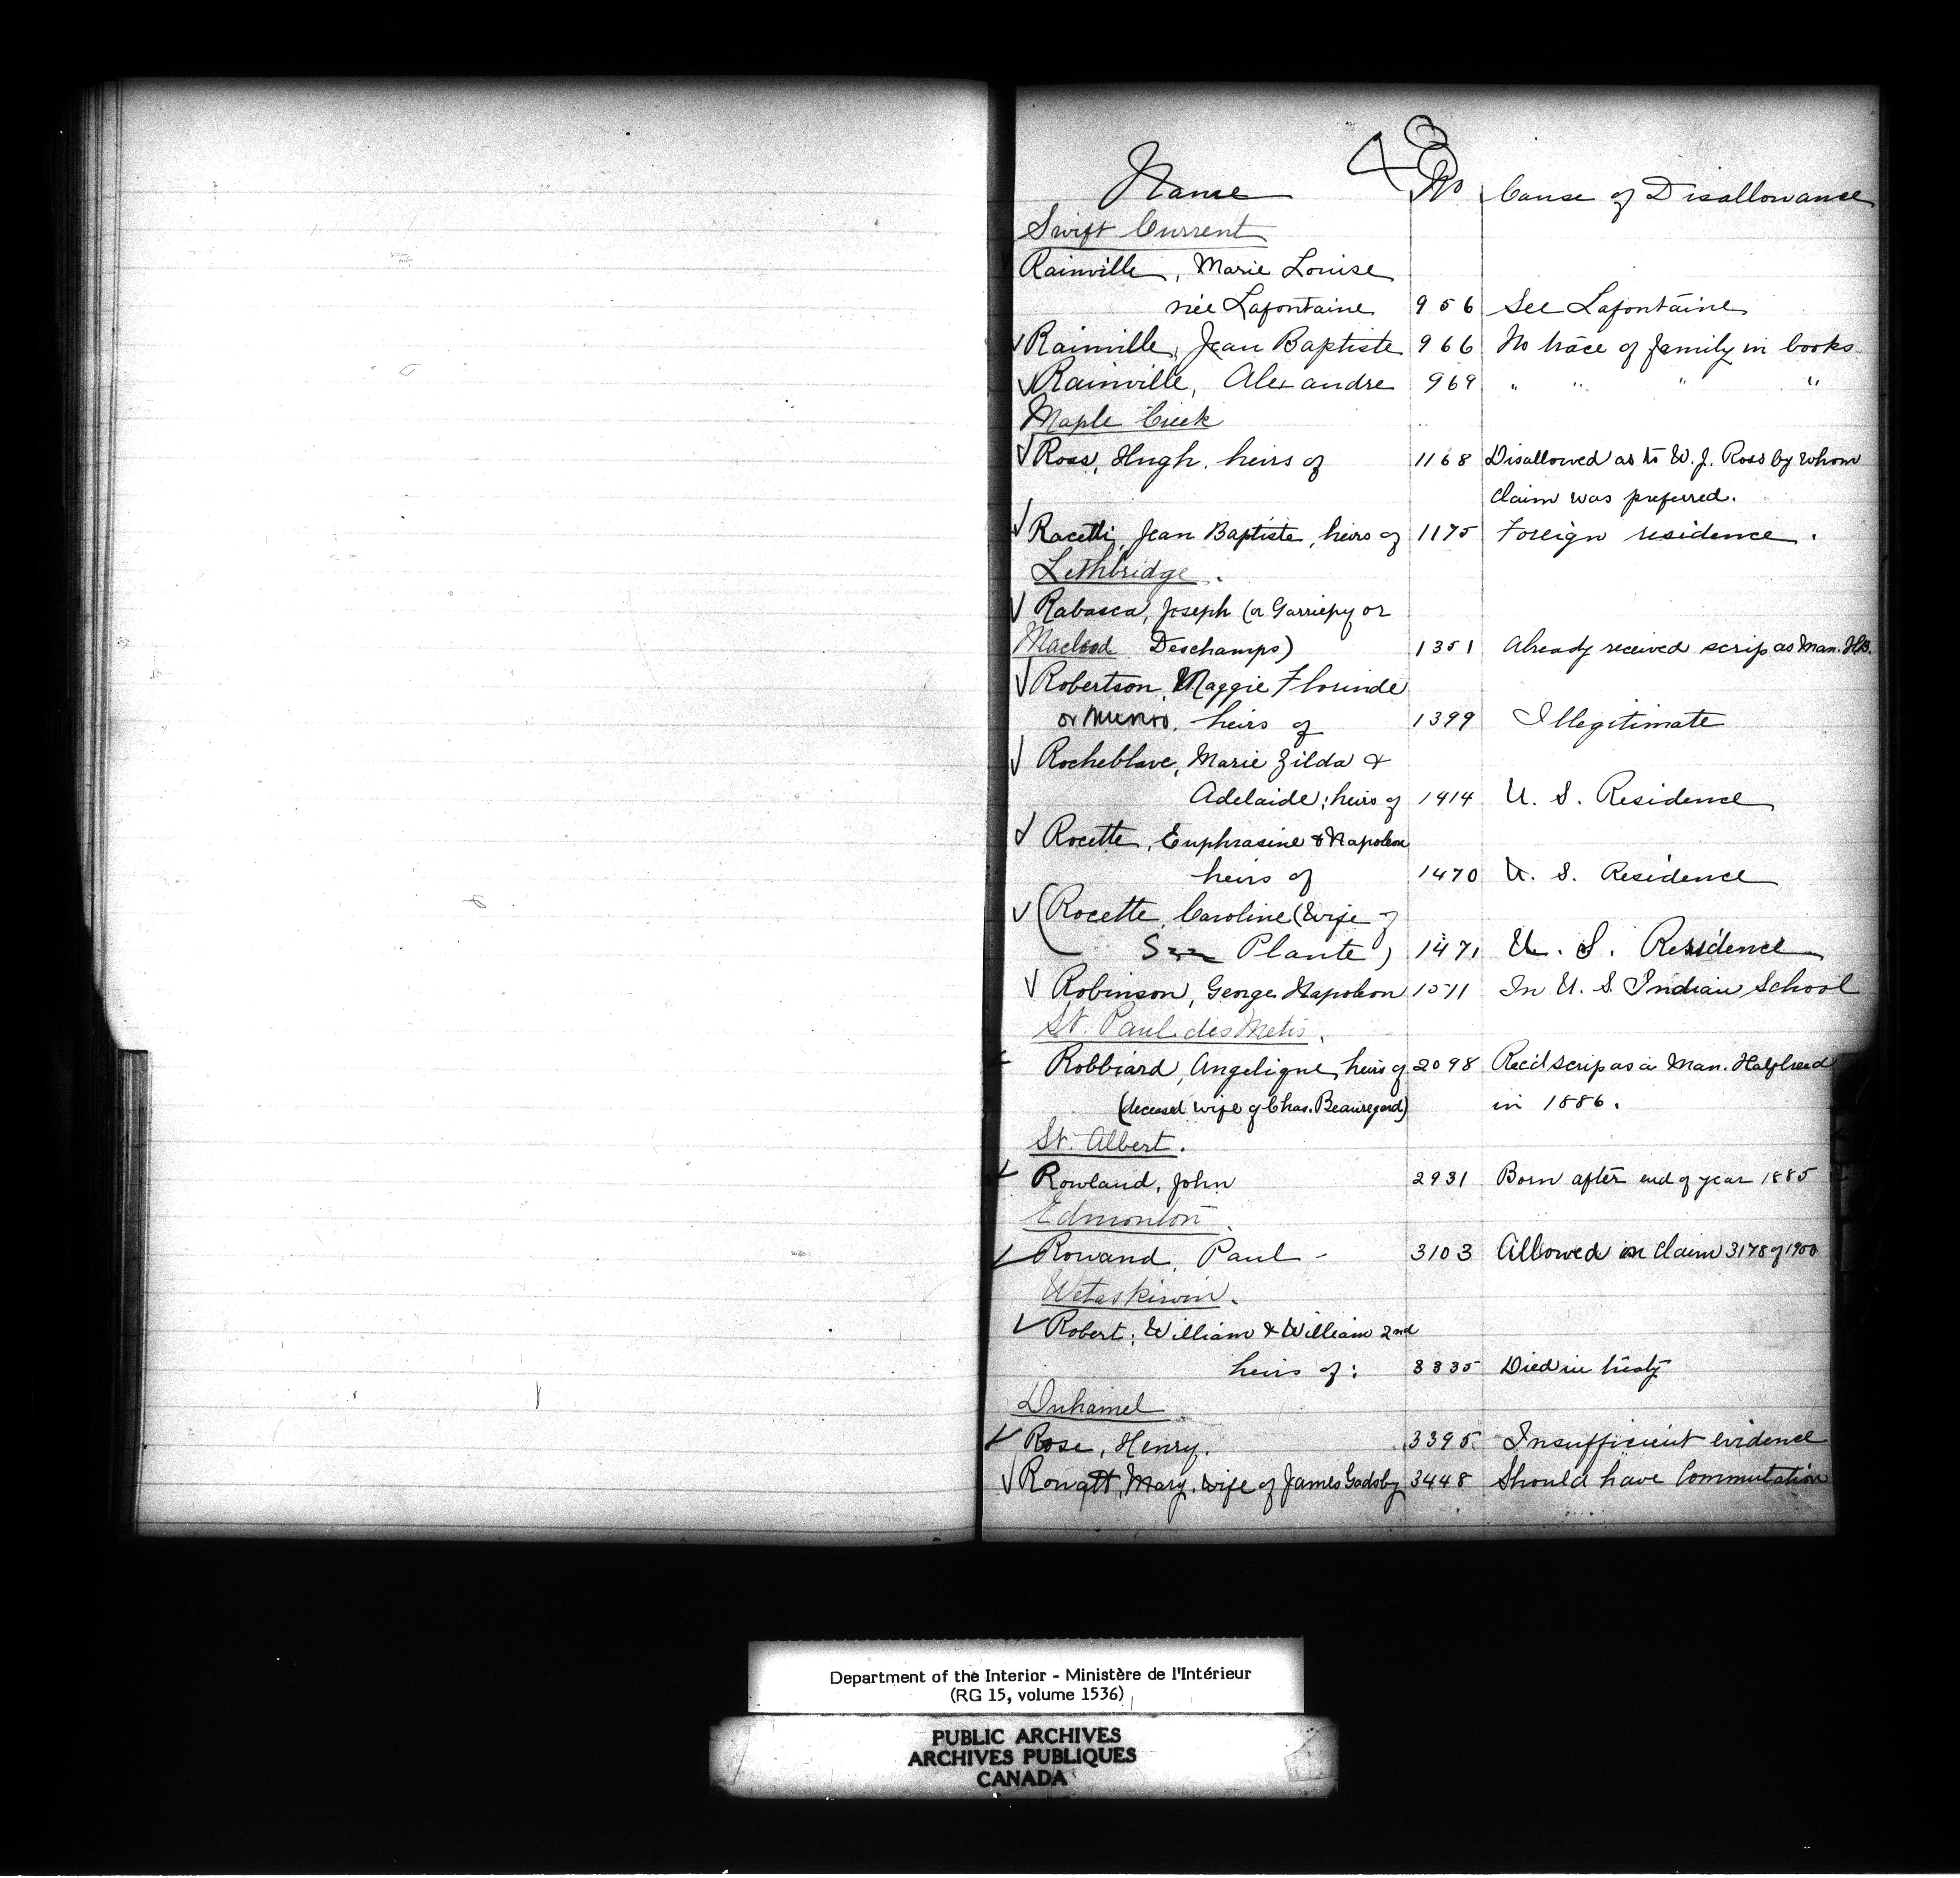 48
Name No Cause of Disallowance
Swift Current
Rainville, Marie Louise
née Lafontaine 956 See Lafontaine
Rainville, Jean Baptiste 966 No trace of family in books
Rainville, Alexandre 969 " " " "
Maple Creek
Ross, Hugh, heirs of 1168 Disallowed as to W. J. Ross by whom
claim was preferred.
Racette, Jean Baptiste, heirs of 1175 Foreign residence.
Lethbridge.
Rabasca, Joseph (or Garriepy or
Macleod Deschamps) 1351 Already received scrip as Man. H.B.
Robertson, Maggie Florinde
or Munro, heirs of 1399 Illegitimate
Rocheblave, Marie Zilda &
Adelaide; heirs of 1414 U. S. Residence
Rocette, Euphrasine & Napoleon
heirs of 1470 U. S. Residence
(Rocette, Caroline (Wife of
Plante) 1471 U. S. Residence
Robinson, George Napoleon 1511 In U. S. Indian School
St. Paul des Metis.
Robbiard, Angelique, heirs of 2098 Rec'd scrip as a Man. Halfbreed
(deceased wife of Chas. Beauregard) in 1886.
St. Albert.
Rowland, John 2931 Born after end of year 1885
Edmonton.
Rowand, Paul - 3103 Allowed in Claim 3178 of 1900
Wetaskiwin.
Robert; William & William 2nd
heirs of: 3335 Died in treaty
Duhamel
Rose, Henry. 3395 Insufficient evidence
Rowatt, Mary, wife of James Gadsby 3448 Should have Commutation
Department of the Interior - Ministère de l'Intérieur
(RG 15, volume 1536)
PUBLIC ARCHIVES
ARCHIVES PUBLIQUES
CANADA